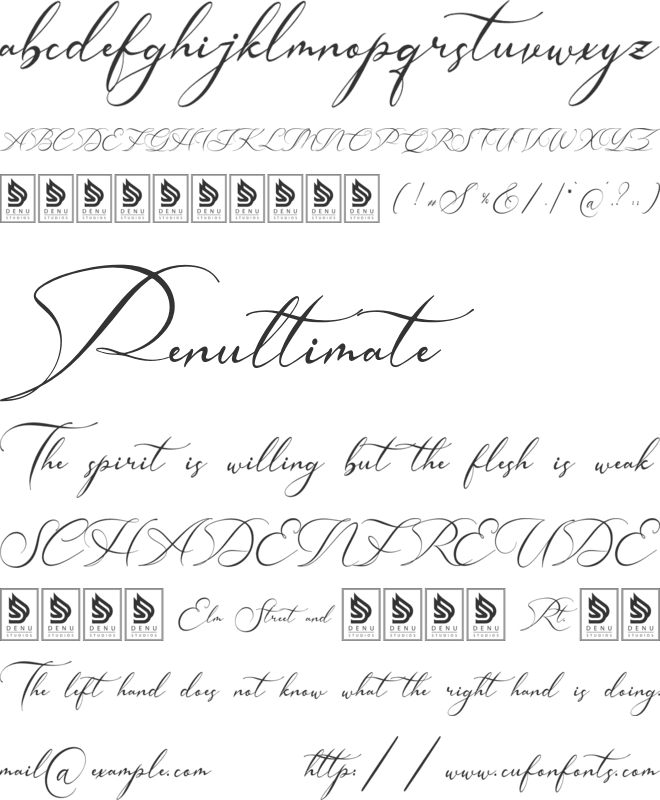 abcdefghijklmnopqrstuvwxyz
ABCDEFGHIJKLMNOPQRSTUVWXYZ
DENU STUDIOS DENU STUDIOS DENU STUDIOS DENU STUDIOS DENU STUDIOS DENU STUDIOS DENU STUDIOS DENU STUDIOS DENU STUDIOS DENU STUDIOS (!"$%&/.|*'@'?:;)
Penultimate
The spirit is willing but the flesh is weak
SCHADENFREUDE
DENU STUDIOS DENU STUDIOS DENU STUDIOS DENU STUDIOS Elm Street and DENU STUDIOS DENU STUDIOS DENU STUDIOS DENU STUDIOS Rt. DENU STUDIOS DENU STUDIOS
The left hand does not know what the right hand is doing.
mail@example.com http://www.cufonfonts.com